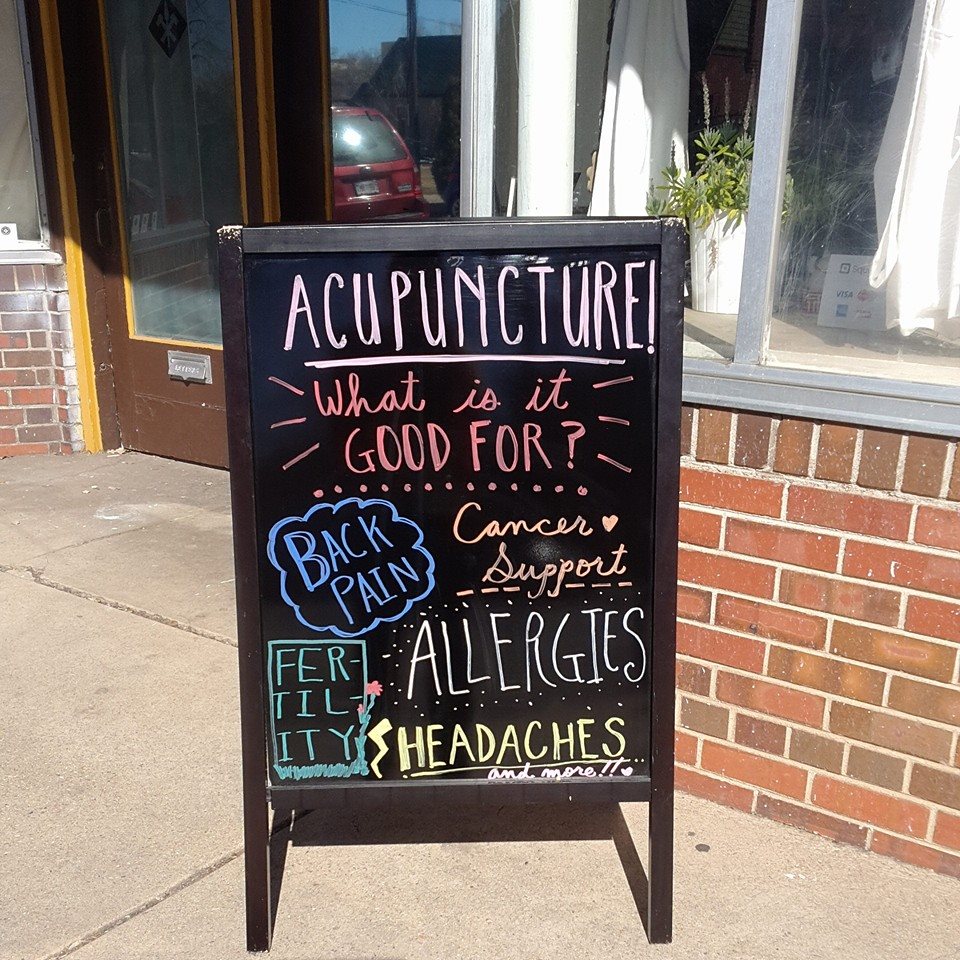 ACUPUNCTURE!
What is it
GOOD FOR?
BACK
PAIN
Cancer
Support
ALLERGIES
FER-
TIL-
ITY
HEADACHES
and more!!
Squ
VISA